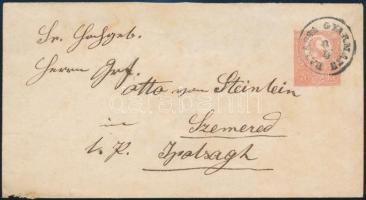 Sr. Hochgeb.
Herrn Grf.
Otto von Steinlein
in
Szemered
l. P. Ipolsagh
GYARMATH